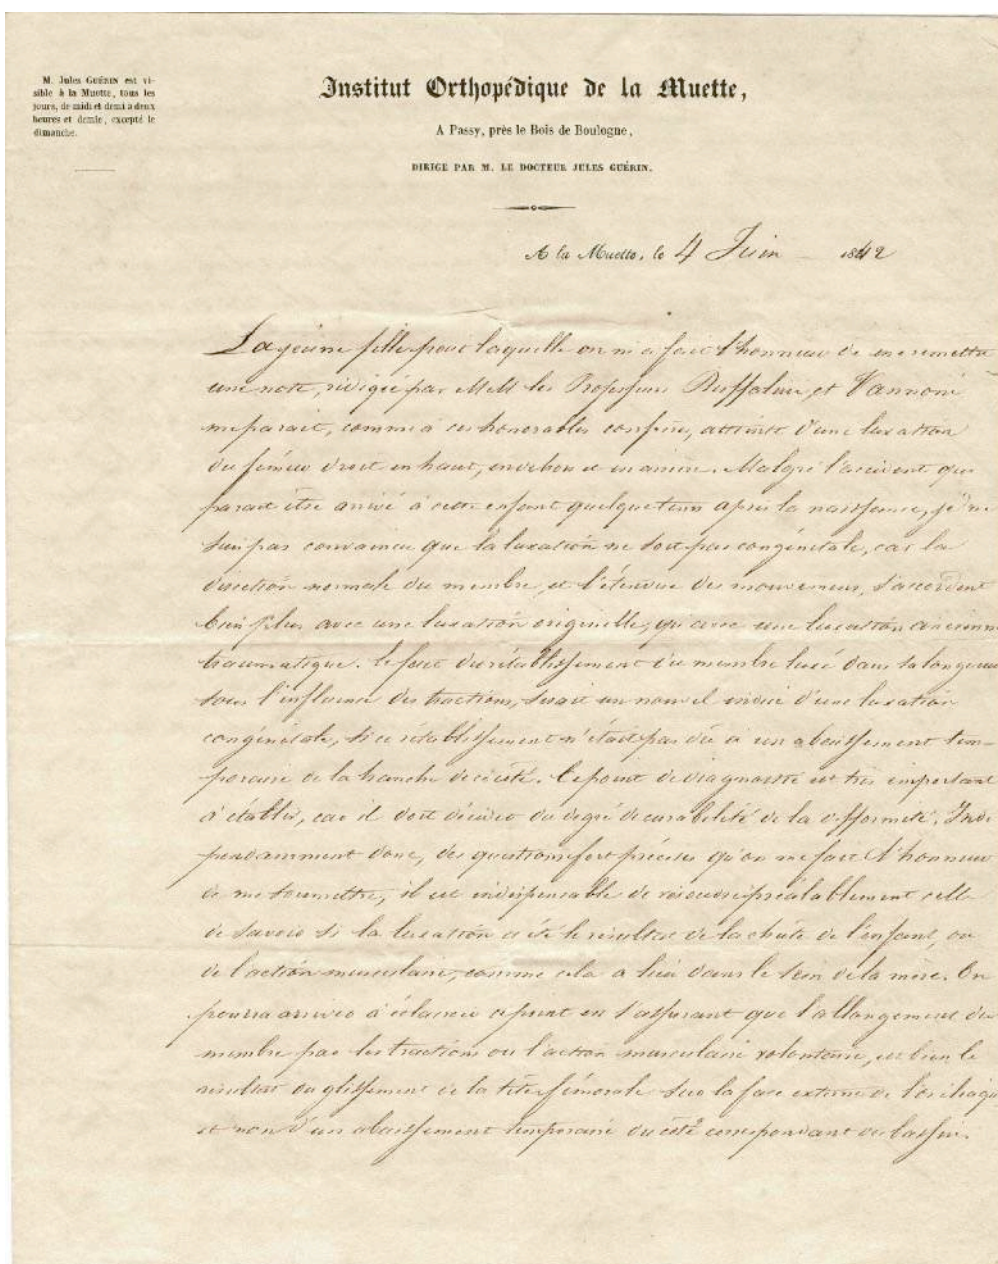 M. Jules GUÉRIN est vi-
sible à la Muette, tous les
jours, de midi et demi à deux
heures et demie, excepté le
dimanche.
Institut Orthopédique de la Muette,
A Passy, près le Bois de Boulogne,
DIRIGÉ PAR M. LE DOCTEUR JULES GUÉRIN.
A la Muette, le 4 Juin 1842
La jeune fille pour laquelle on m'a fait l'honneur de me remettre
une note, rédigée par MM les Professeurs Buffalini et Vannoni
me parait, comme à ces honorables confrères, atteinte d'une luxation
du fémur droit en haut, en dehors et en arrière. Malgré l'accident qui
parait être arrivé à cette enfant quelque tems après la naissance, je ne
suis pas convaincu que la luxation ne soit pas congénitale, car la
direction normale du membre, et l'étendue des mouvemens, s'accordent
bien plus avec une luxation originelle, qu'avec une luxation ancienne
traumatique. Le fait du rétablissement du membre luxé dans sa longueur
sous l'influence des tractions, serait un nouvel indice d'une luxation
congénitale, si ce rétablissement n'était pas dû à un abaissement tem-
poraire de la hanche de ce côté. Ce point de diagnostic est très important
à établir, car il doit décider du degré de curabilité de la difformité. Indé
pendamment donc, des questions fort précises qu'on me fait l'honneur
de me soumettre, il est indispensable de résoudre préalablement celle
de savoir si la luxation a été le résultat de la chute de l'enfant, ou
de l'action musculaire, comme cela a lieu dans le sein de la mère. On
pourra arriver à éclaircir ce point en s'assurant que l'allongement du
membre par les tractions ou l'action musculaire volontaire, est bien le
résultat du glissement de la tête fémorale sur la face externe de l'os iliaque
et non d'un abaissement temporaire du côté correspondant du bassin.